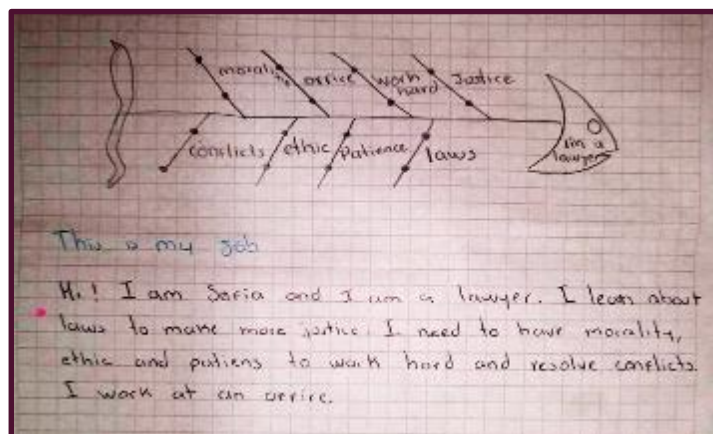 morality office work hard Justice
conflicts ethic patience laws
I'm a lawyer
This is my job
Hi! I am Sofia and I am a lawyer. I learn about
laws to make more justice. I need to have morality,
ethic and patiens to work hard and resolve conflicts.
I work at an office.